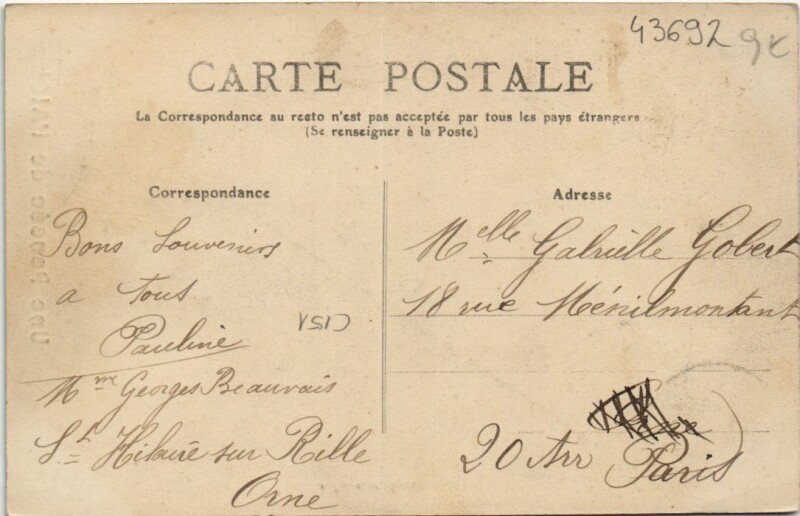 43692 9€
CARTE POSTALE
La Correspondance au recto n'est pas acceptée par tous les pays étrangers
(Se renseigner à la Poste)
Correspondance
Bons Souvenirs
a tous
Pauline
Mme Georges Beauvais
St Hilaire sur Rille
Orne
Adresse
Melle Gabrielle Gobert
18 rue Ménilmontant
20 Arr Paris